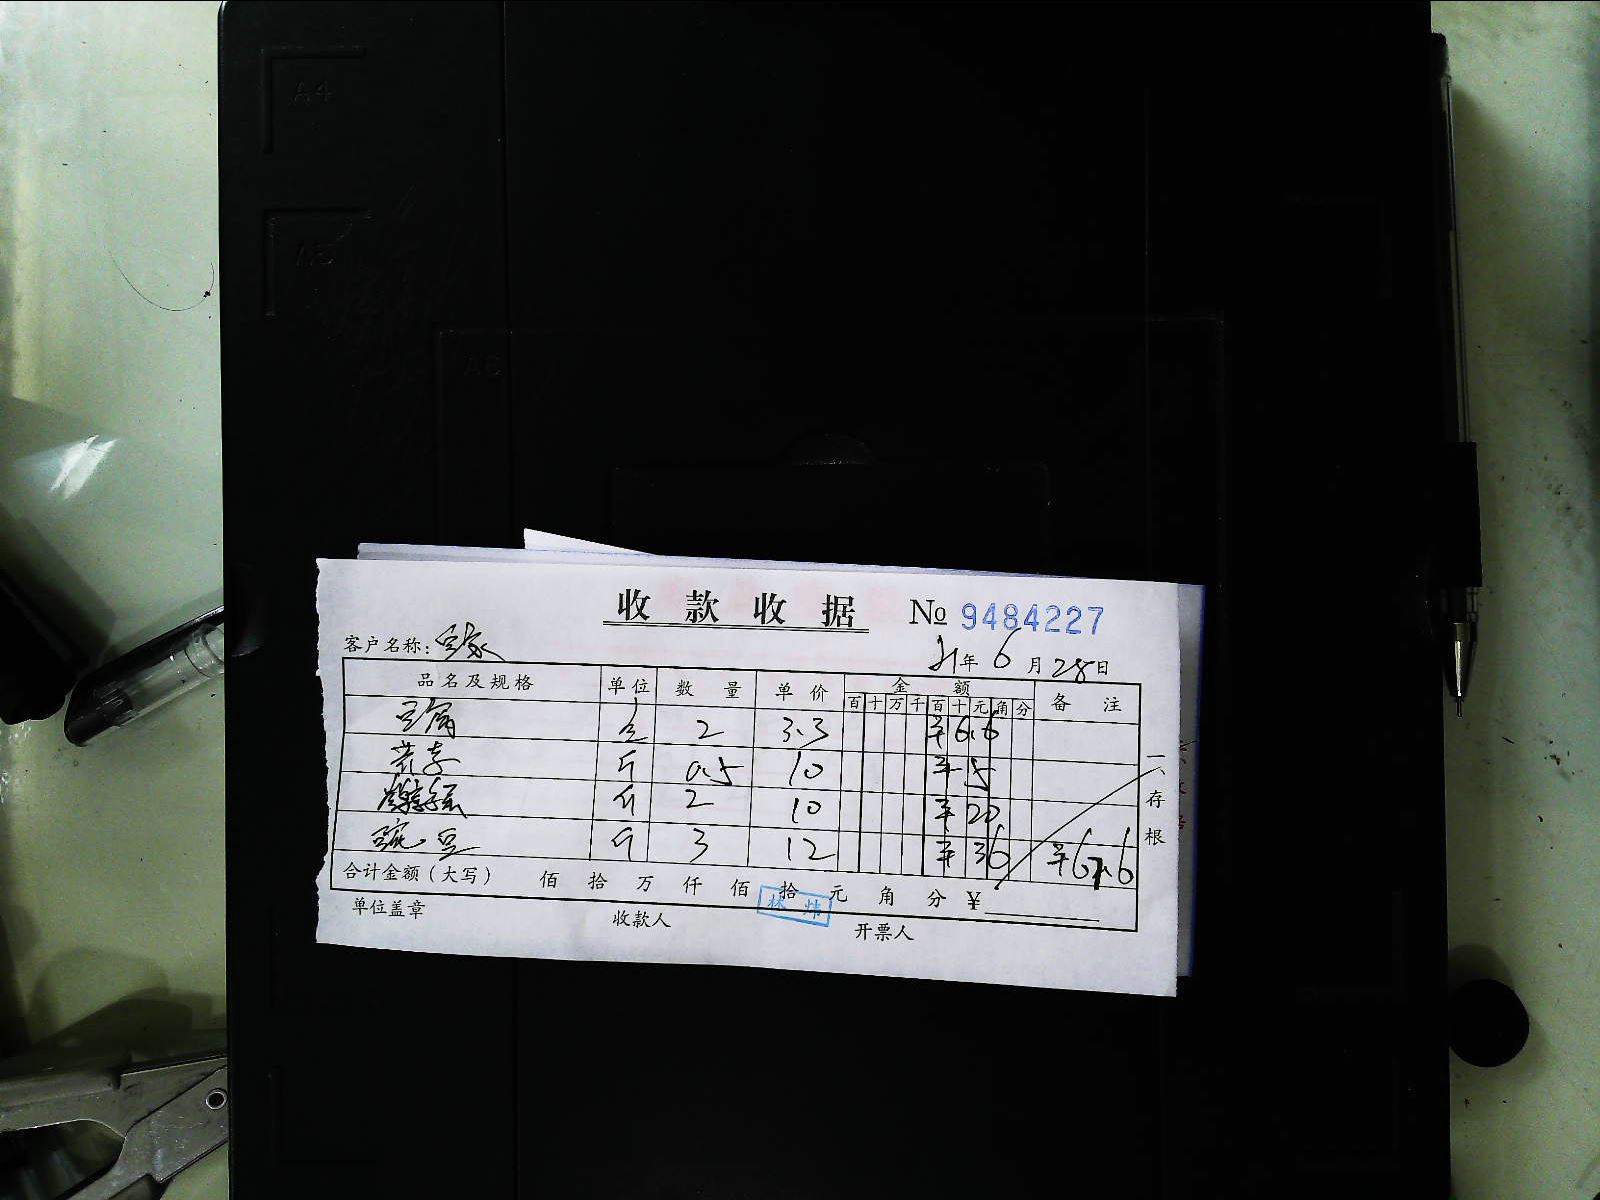 A4
A5
A6
收款收据 № 9484227
客户名称:
21年 6月 28日
品名及规格 单位 数量 单价 金额 备注
百 十 万 千 百 十 元 角 分
豆腐 2 3.3 ¥6.6
斤 0.5 10 ¥5
斤 2 10 ¥20
豌豆 斤 3 12 ¥36 ¥67.6
合计金额(大写) 佰 拾 万 仟 佰 拾 元 角 分 ¥
单位盖章 收款人 林炜 开票人
一存根